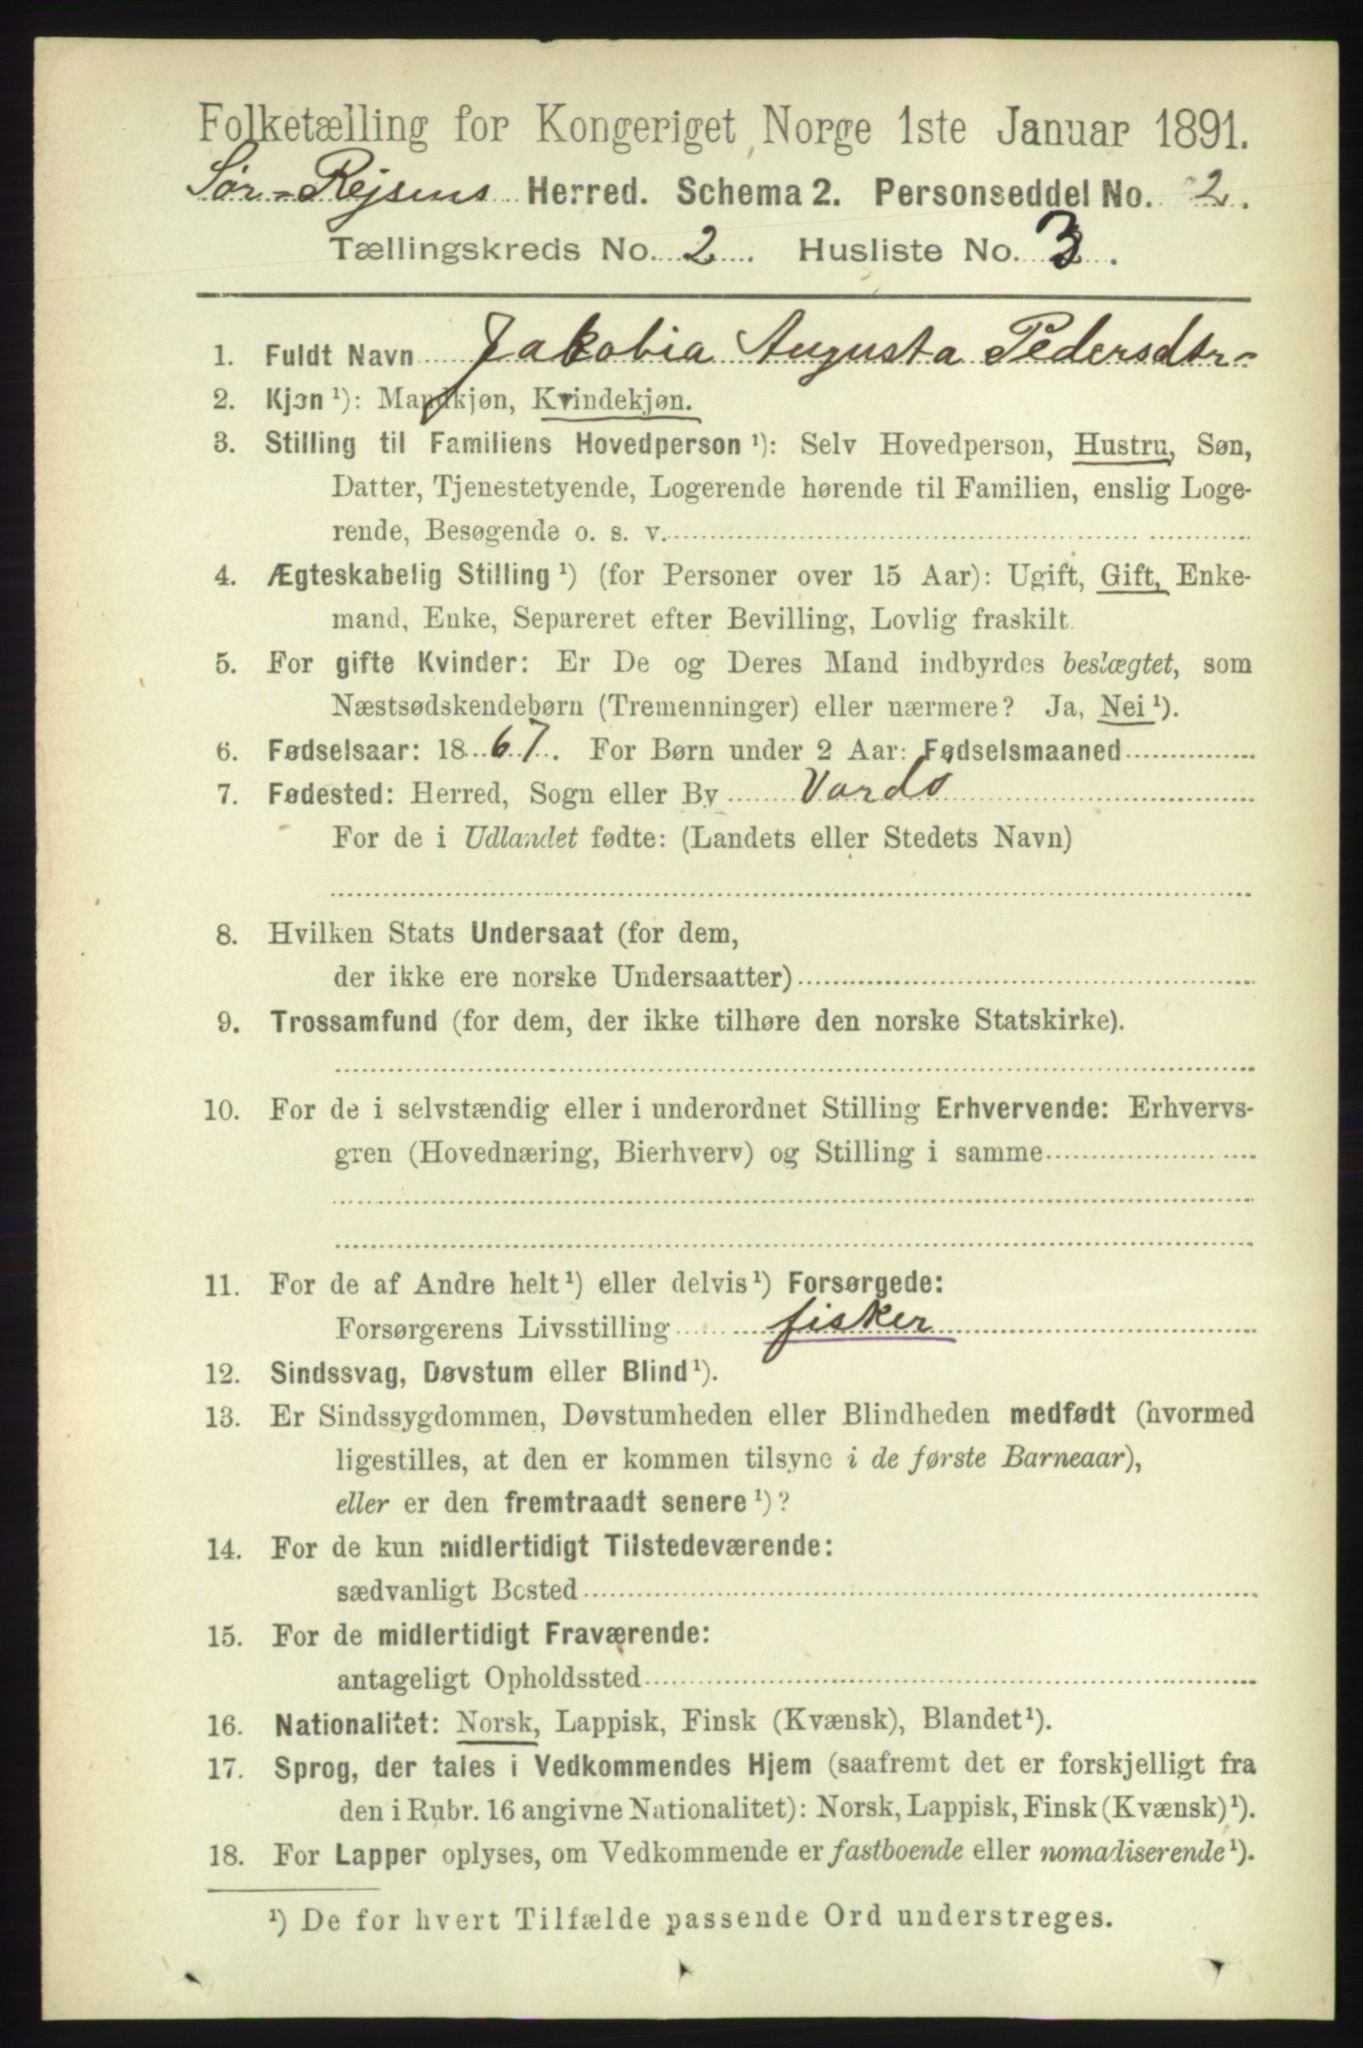 Folketælling for Kongeriget Norge 1ste Januar 1891.
Sør-Rejsens Herred. Schema 2. Personseddel No. 2.
Tællingskreds No. 2. Husliste No. 3.
1. Fuldt Navn Jakobia Augusta Pedersdtr-
2. Kjøn ¹): Mandkjøn, Kvindekjøn.
3. Stilling til Familiens Hovedperson ¹): Selv Hovedperson, Hustru, Søn,
Datter, Tjenestetyende, Logerende hørende til Familien, enslig Loge-
rende, Besøgende o. s. v.
4. Ægteskabelig Stilling ¹) (for Personer over 15 Aar): Ugift, Gift, Enke-
mand, Enke, Separeret efter Bevilling, Lovlig fraskilt
5. For gifte Kvinder: Er De og Deres Mand indbyrdes beslægtet, som
Næstsødskendebørn (Tremenninger) eller nærmere? Ja, Nei ¹).
6. Fødselsaar: 1867. For Børn under 2 Aar: Fødselsmaaned
7. Fødested: Herred, Sogn eller By Vardö
For de i Udlandet fødte: (Landets eller Stedets Navn)
8. Hvilken Stats Undersaat (for dem,
der ikke ere norske Undersaatter)
9. Trossamfund (for dem, der ikke tilhøre den norske Statskirke).
10. For de i selvstændig eller i underordnet Stilling Erhvervende: Erhvervs-
gren (Hovednæring, Bierhverv) og Stilling i samme
11. For de af Andre helt ¹) eller delvis ¹) Forsørgede:
Forsørgerens Livsstilling fisker
12. Sindssvag, Døvstum eller Blind ¹).
13. Er Sindssygdommen, Døvstumheden eller Blindheden medfødt (hvormed
ligestilles, at den er kommen tilsyne i de første Barneaar),
eller er den fremtraadt senere ¹)?
14. For de kun midlertidigt Tilstedeværende:
sædvanligt Bosted
15. For de midlertidigt Fraværende:
antageligt Opholdssted
16. Nationalitet: Norsk, Lappisk, Finsk (Kvænsk), Blandet ¹).
17. Sprog, der tales i Vedkommendes Hjem (saafremt det er forskjelligt fra
den i Rubr. 16 angivne Nationalitet): Norsk, Lappisk, Finsk (Kvænsk) ¹).
18. For Lapper oplyses, om Vedkommende er fastboende eller nomadiserende ¹).
¹) De for hvert Tilfælde passende Ord understreges.